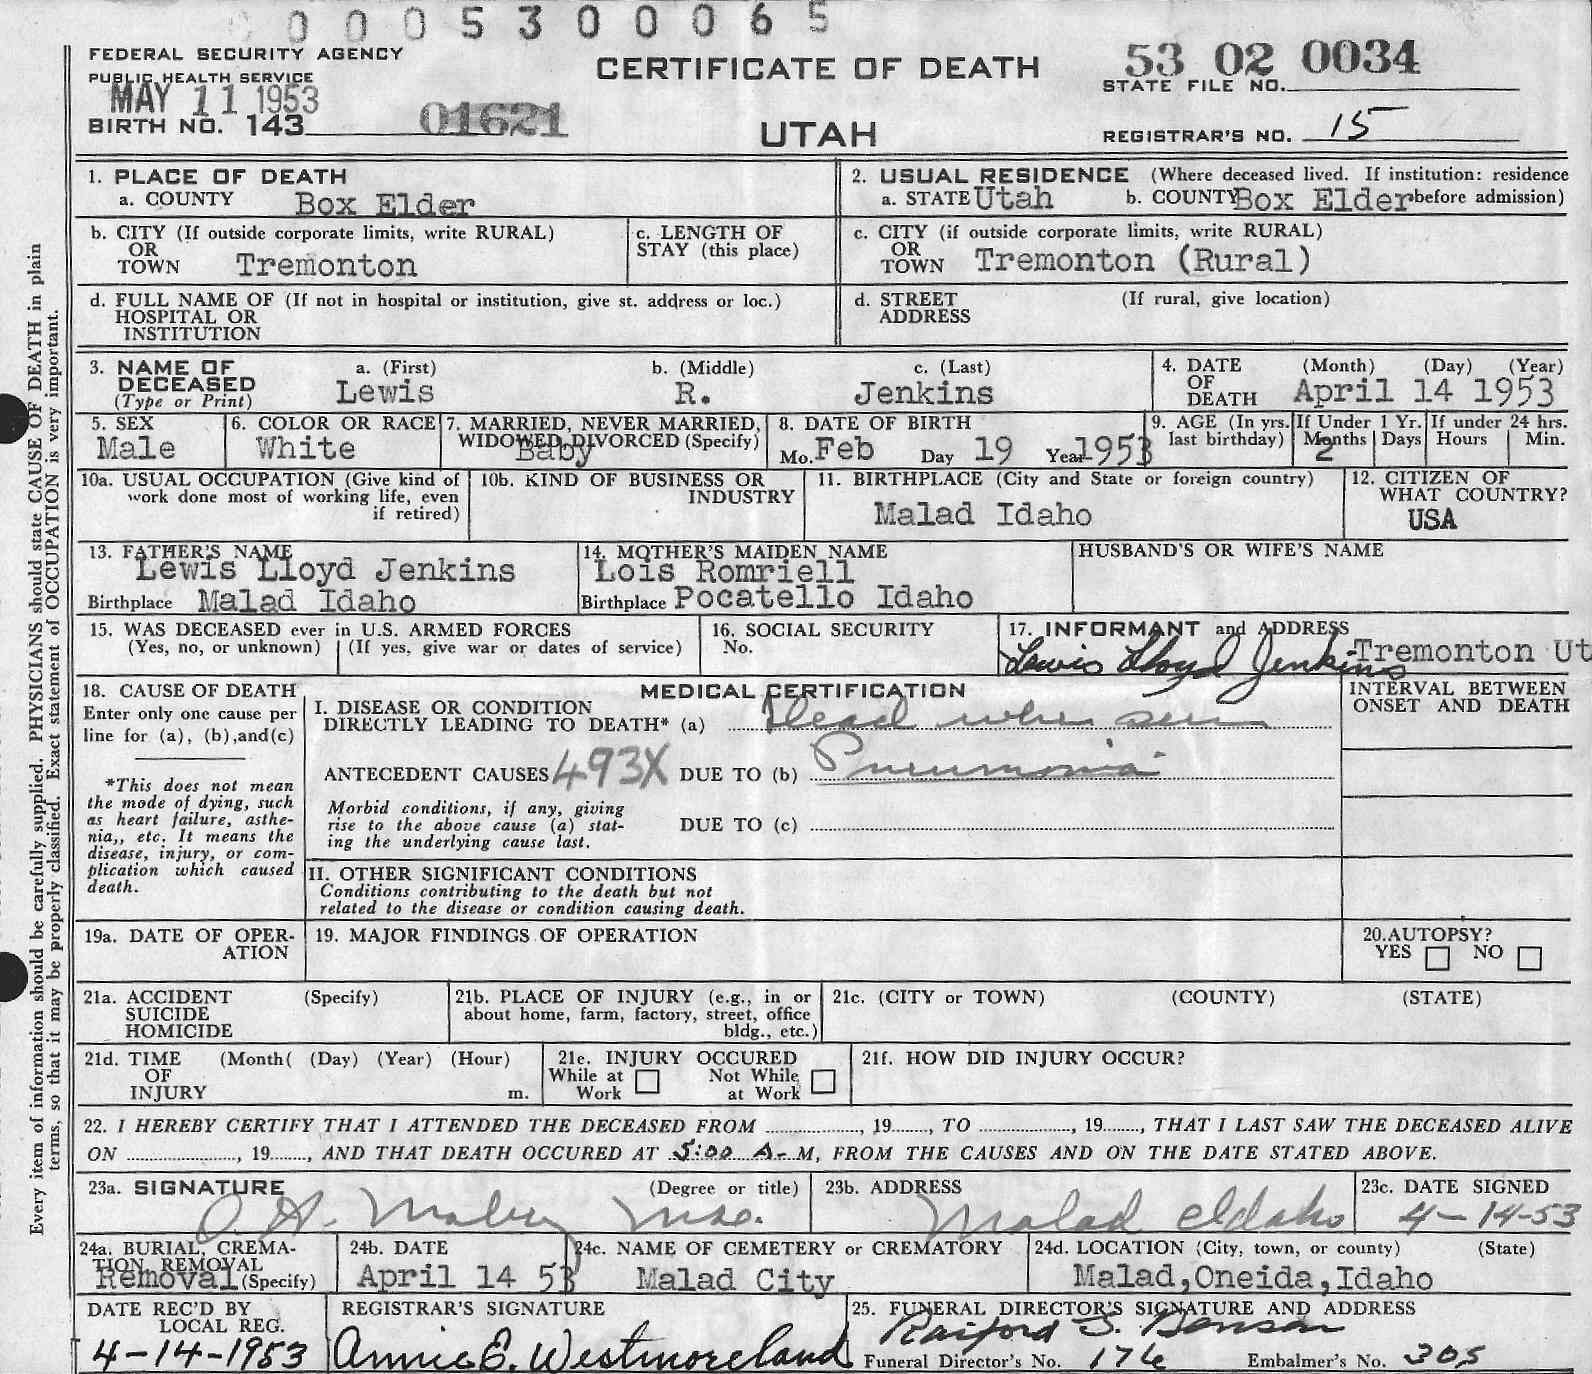 0005300065
FEDERAL SECURITY AGENCY
PUBLIC HEALTH SERVICE
MAY 11 1953
BIRTH NO. 143
01621
CERTIFICATE OF DEATH
UTAH
53 02 0034
STATE FILE NO.
REGISTRAR'S NO. 15
1. PLACE OF DEATH
a. COUNTY Box Elder
2. USUAL RESIDENCE (Where deceased lived. If institution: residence
a. STATE Utah b. COUNTY Box Elder before admission)
b. CITY (If outside corporate limits, write RURAL)
OR
TOWN Tremonton
c. LENGTH OF
STAY (this place)
c. CITY (if outside corporate limits, write RURAL)
OR
TOWN Tremonton (Rural)
d. FULL NAME OF (If not in hospital or institution, give st. address or loc.)
HOSPITAL OR
INSTITUTION
d. STREET (If rural, give location)
ADDRESS
3. NAME OF a. (First) b. (Middle) c. (Last)
DECEASED
(Type or Print) Lewis R. Jenkins
4. DATE (Month) (Day) (Year)
OF
DEATH April 14 1953
5. SEX
Male
6. COLOR OR RACE
White
7. MARRIED, NEVER MARRIED,
WIDOWED, DIVORCED (Specify)
Baby
8. DATE OF BIRTH
Mo. Feb Day 19 Year 1953
9. AGE (In yrs. If Under 1 Yr. If under 24 hrs.
last birthday) Months Days Hours Min.
2
10a. USUAL OCCUPATION (Give kind of
work done most of working life, even
if retired)
10b. KIND OF BUSINESS OR
INDUSTRY
11. BIRTHPLACE (City and State or foreign country)
Malad Idaho
12. CITIZEN OF
WHAT COUNTRY?
USA
13. FATHER'S NAME
Lewis Lloyd Jenkins
Birthplace Malad Idaho
14. MOTHER'S MAIDEN NAME
Lois Romriell
Birthplace Pocatello Idaho
HUSBAND'S OR WIFE'S NAME
15. WAS DECEASED ever in U.S. ARMED FORCES
(Yes, no, or unknown) (If yes, give war or dates of service)
16. SOCIAL SECURITY
No.
17. INFORMANT and ADDRESS
Lewis Lloyd Jenkins Tremonton Ut
18. CAUSE OF DEATH
Enter only one cause per
line for (a), (b),and(c)
*This does not mean
the mode of dying, such
as heart failure, asthe-
nia,, etc. It means the
disease, injury, or com-
plication which caused
death.
MEDICAL CERTIFICATION
I. DISEASE OR CONDITION
DIRECTLY LEADING TO DEATH* (a) Dead when seen
ANTECEDENT CAUSES 493X DUE TO (b) Pneumonia
Morbid conditions, if any, giving
rise to the above cause (a) stat-
ing the underlying cause last.
DUE TO (c)
INTERVAL BETWEEN
ONSET AND DEATH
II. OTHER SIGNIFICANT CONDITIONS
Conditions contributing to the death but not
related to the disease or condition causing death.
19a. DATE OF OPER-
ATION
19. MAJOR FINDINGS OF OPERATION
20.AUTOPSY?
YES NO
21a. ACCIDENT (Specify)
SUICIDE
HOMICIDE
21b. PLACE OF INJURY (e.g., in or
about home, farm, factory, street, office
bldg., etc.)
21c. (CITY or TOWN) (COUNTY) (STATE)
21d. TIME (Month( (Day) (Year) (Hour)
OF
INJURY m.
21e. INJURY OCCURED
While at Not While
Work at Work
21f. HOW DID INJURY OCCUR?
22. I HEREBY CERTIFY THAT I ATTENDED THE DECEASED FROM ............, 19......, TO ............, 19......, THAT I LAST SAW THE DECEASED ALIVE
ON ............, 19......, AND THAT DEATH OCCURED AT 5:00 A. M, FROM THE CAUSES AND ON THE DATE STATED ABOVE.
23a. SIGNATURE (Degree or title)
O. H. Mabey M.D.
23b. ADDRESS
Malad Idaho
23c. DATE SIGNED
4-14-53
24a. BURIAL, CREMA-
TION, REMOVAL
Removal (Specify)
24b. DATE
April 14 53
24c. NAME OF CEMETERY or CREMATORY
Malad City
24d. LOCATION (City, town, or county) (State)
Malad,Oneida,Idaho
DATE REC'D BY
LOCAL REG.
4-14-1953
REGISTRAR'S SIGNATURE
Annie E. Westmoreland
25. FUNERAL DIRECTOR'S SIGNATURE AND ADDRESS
Raiford S. Benson
Funeral Director's No. 176 Embalmer's No. 305
Every item of information should be carefully supplied. PHYSICIANS should state CAUSE OF DEATH in plain
terms, so that it may be properly classified. Exact statement of OCCUPATION is very important.